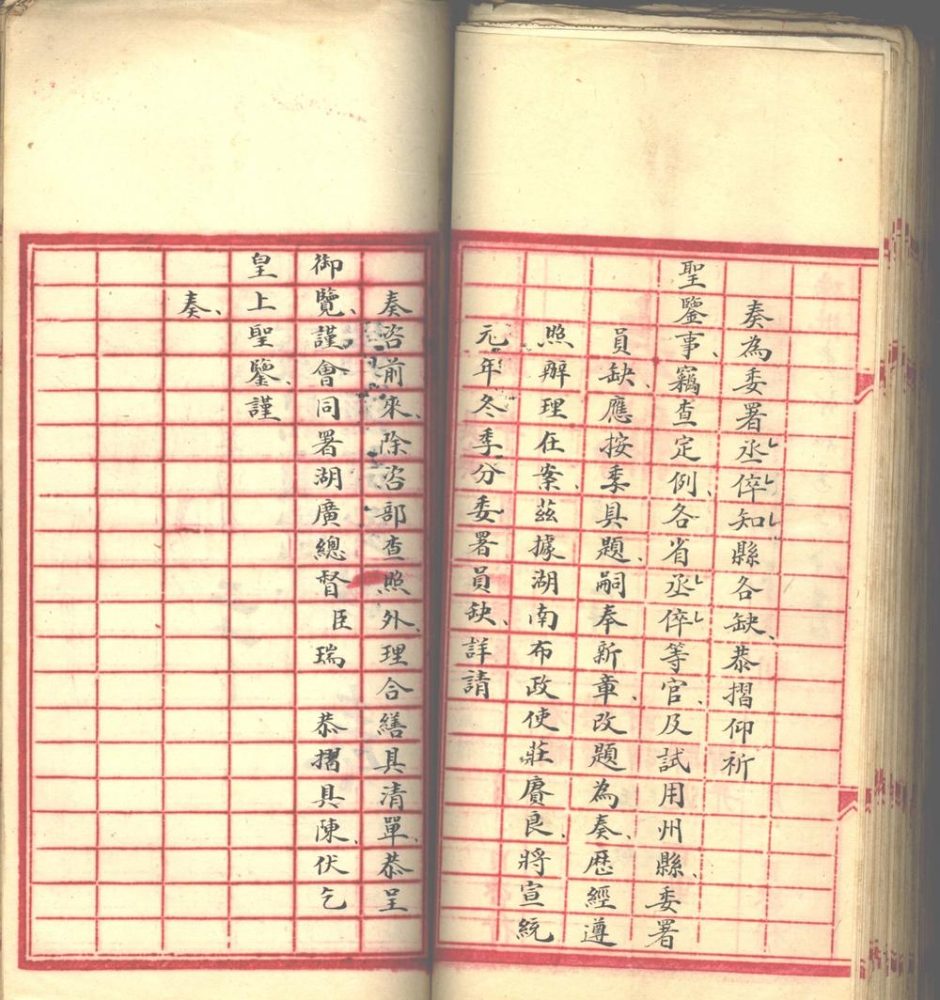 奏為委署丞倅知縣各缺、恭摺仰祈
聖鑒事、竊查定例、各省丞倅等官、及試用州縣、委署
員缺、應按季具題、嗣奉新章、改題為奏、歷經遵
照辦理在案、茲據湖南布政使莊賡良、將宣統
元年冬季分委署員缺、詳請
奏咨前來、除咨部查照外、理合繕具清單、恭呈
御覽、謹會同署湖廣總督臣瑞 恭摺具陳、伏乞
皇上聖鑒、謹
奏、